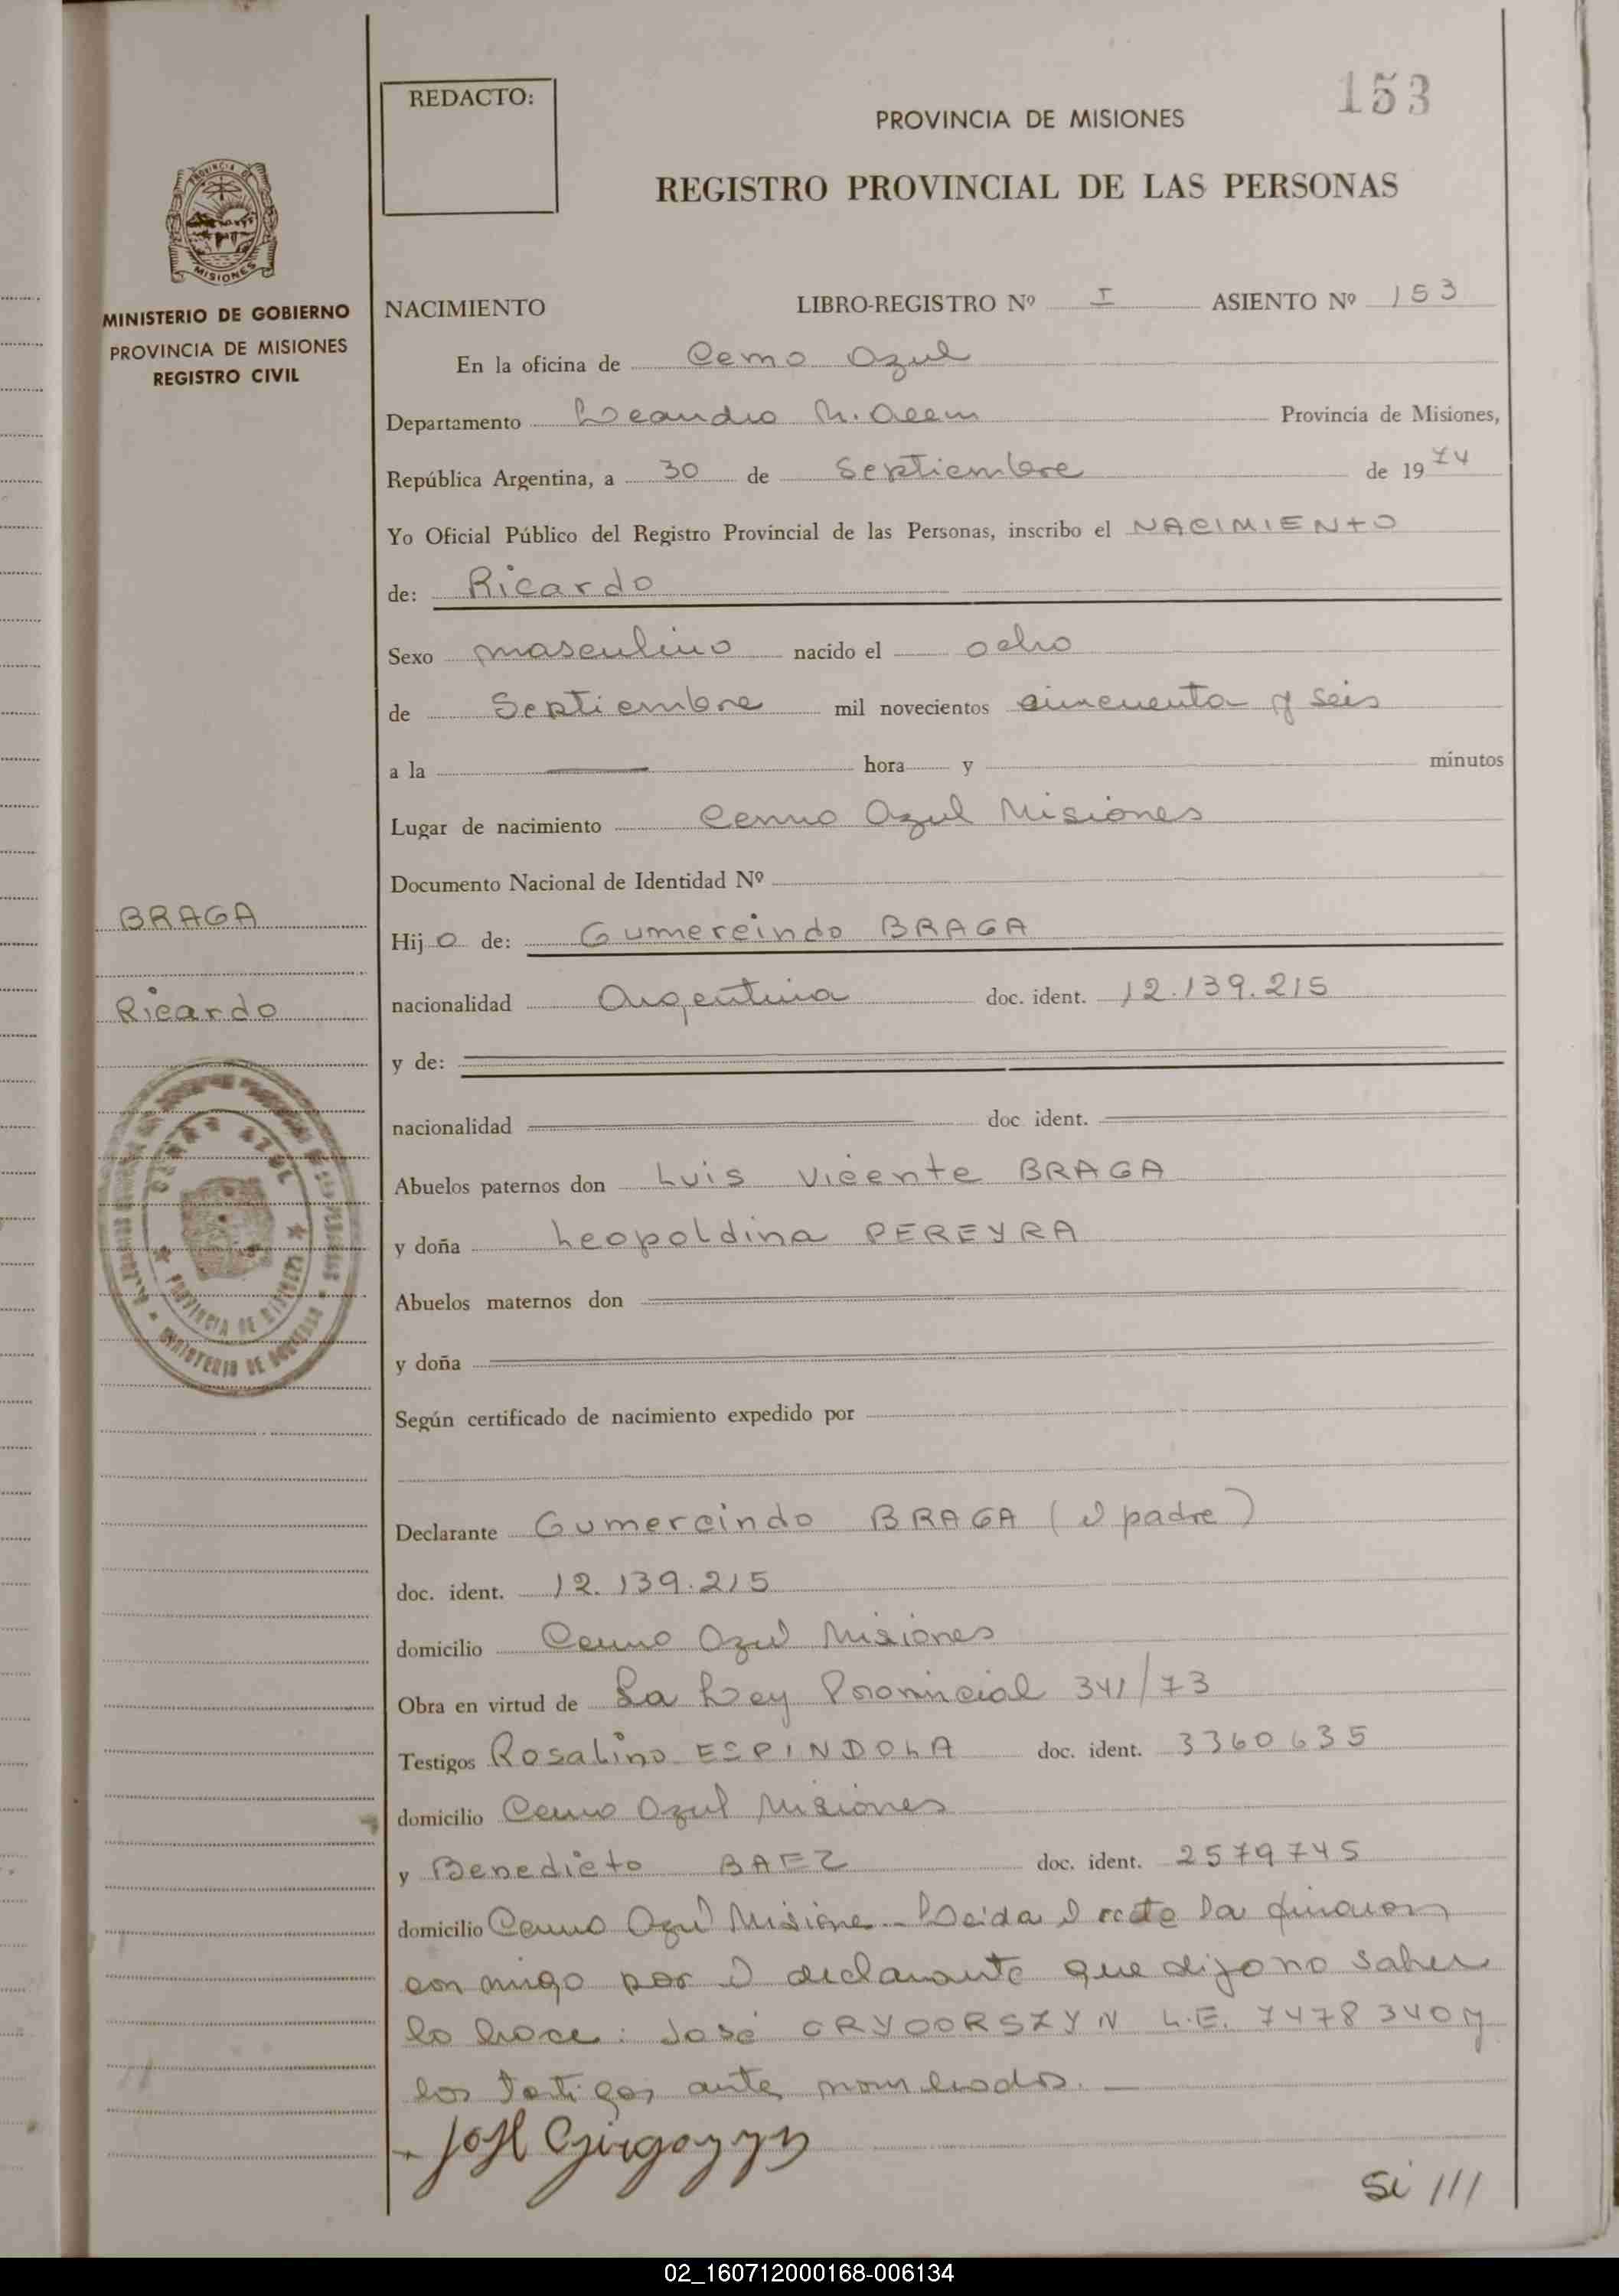 REDACTO:
153
PROVINCIA DE MISIONES
REGISTRO PROVINCIAL DE LAS PERSONAS
MISIONES
MINISTERIO DE GOBIERNO
PROVINCIA DE MISIONES
REGISTRO CIVIL
NACIMIENTO LIBRO-REGISTRO Nº I ASIENTO Nº 153
En la oficina de Cerro Azul
Departamento Leandro N. Alem Provincia de Misiones,
República Argentina, a 30 de Septiembre de 1974
Yo Oficial Público del Registro Provincial de las Personas, inscribo el NACIMIENTO
de: Ricardo
Sexo masculino nacido el ocho
de Septiembre mil novecientos cincuenta y seis
a la — hora y minutos
Lugar de nacimiento Cerro Azul Misiones
Documento Nacional de Identidad Nº
BRAGA
Ricardo
Hijo de: Gumercindo BRAGA
nacionalidad Argentina doc. ident. 12.139.215
y de:
nacionalidad doc. ident.
CERRO AZUL
PROVINCIA DE MISIONES
MINISTERIO DE GOBIERNO
Abuelos paternos don Luis Vicente BRAGA
y doña Leopoldina PEREYRA
Abuelos maternos don
y doña
Según certificado de nacimiento expedido por
Declarante Gumercindo BRAGA (el padre)
doc. ident. 12.139.215
domicilio Cerro Azul Misiones
Obra en virtud de La Ley Provincial 341/73
Testigos Rosalino ESPINDOLA doc. ident. 3360635
domicilio Cerro Azul Misiones
y Benedicto BAEZ doc. ident. 2579745
domicilio Cerro Azul Misione. Leida el acta la firman
con migo por el declarante que dijo no saber
lo hace: José L.E. 7478340 y
los testigos ante nombrados. —
José
Si ///
02_160712000168-006134